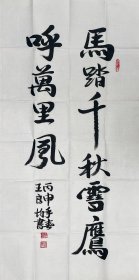 馬踏千秋雪鷹
呼萬里風
丙申年春
王良均書